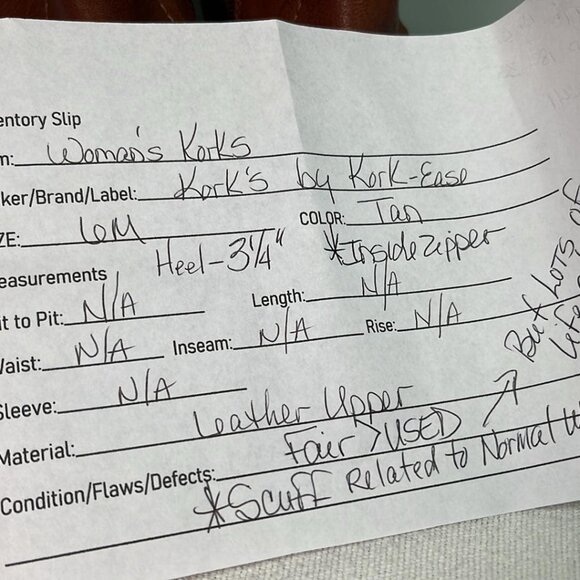 entory Slip
m: Woman's Korks
ker/Brand/Label: Kork's by Kork-Ease
ZE: 6M COLOR: Tan
Heel-3 1/4" *Inside Zipper
easurements
it to Pit: N/A Length: N/A
Waist: N/A Inseam: N/A Rise: N/A
Sleeve: N/A
Material: Leather Upper
Condition/Flaws/Defects: Fair > USED → But Lots of
*Scuff Related to Normal W